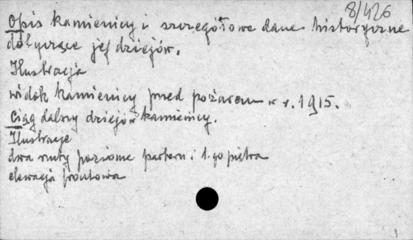 8/426
Opis kamienicy i szczegółowe dane historyczne
dotyczące jej dziejów.
Ilustracja
widok kamienicy przed pożarem w r. 1915.
Ciąg dalszy dziejów kamienicy.
Ilustracje
dwa rzuty poziome parteru i 1.go piętra
elewacja frontowa